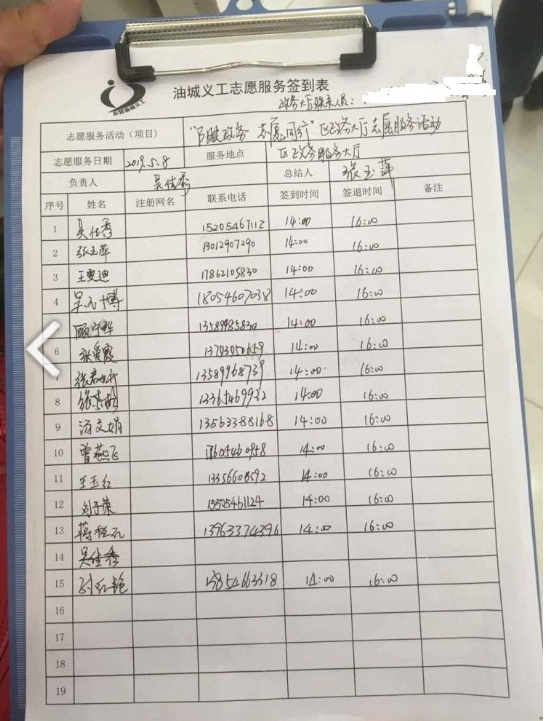 油城义工志愿服务签到表
政务大厅联系人:
志愿服务活动(项目) 志愿同行"区政务大厅志愿服务活动
志愿服务日期 2019.5.8 服务地点 区政务服务大厅
负责人 吴佳秀 总结人 张玉萍
序号 姓名 注册网名 联系电话 签到时间 签退时间 备注
1 吴佳秀 15205467112 14:00 16:00
2 张玉萍 13012907290 14:00 16:00
3 王更迪 17862105830 14:00 16:00
4 18054607038 14:00 16:00
13589985830 14:00 16:00
6 张爱霞 14:00 16:00
7 13589968739 14:00 16:00
8 13365469932 14:00 16:00
9 汤文娟 13563388168 14:00 16:00
10 曾燕飞 14:00 16:00
11 王玉红 14:00 16:00
12 刘子荣 14:00 16:00
13 13963374396 14:00 16:00
14 吴佳秀
15 刘红艳 13854663318 14:00 16:00
16
17
18
19